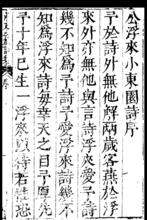 公浮來小東園詩序
予於詩外無他與解兩歲客燕於浮
來外亦無他與言詩浮來愛予詩
幾不知為予詩予愛浮來詩幾不
知為浮來詩每幸天之曰予原先
予十年巳生一浮來以待若